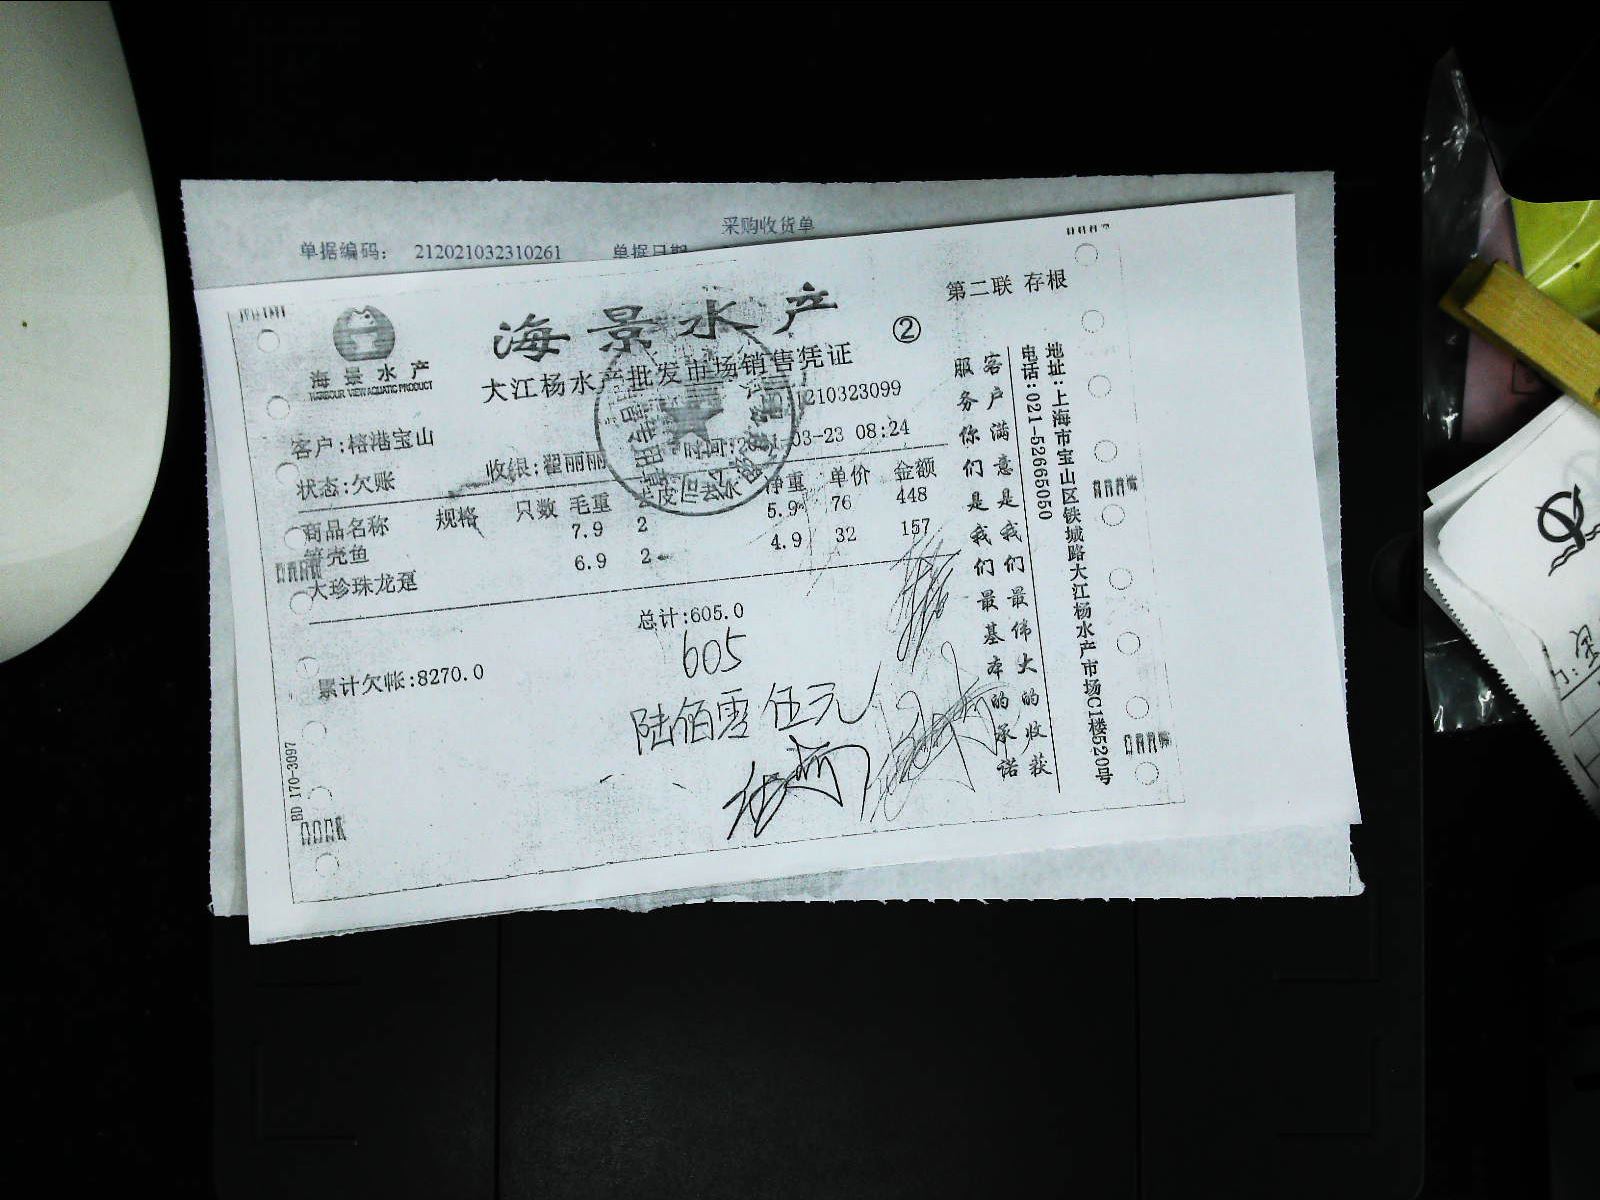 采购收货单
单据编码: 212021032310261 单据日期
第二联 存根
海景水产
HARBOUR VIEW AQUATIC PRODUCT
海景水产 ②
大江杨水产批发市场销售凭证
客户:榕港宝山 1210323099
状态:欠账 收银:翟丽丽 时间: -03-23 08:24
商品名称 规格 只数 毛重 皮 回去水 净重 单价 金额
笋壳鱼 7.9 2 5.9 76 448
大珍珠龙趸 6.9 2 4.9 32 157
总计:605.0
605
累计欠帐:8270.0
陆佰零伍元
客户满意是我们最伟大的收获
服务你们是我们最基本的承诺
地址:上海市宝山区铁城路大江杨水产市场C1楼520号
电话:021-52665050
BD 170-3097